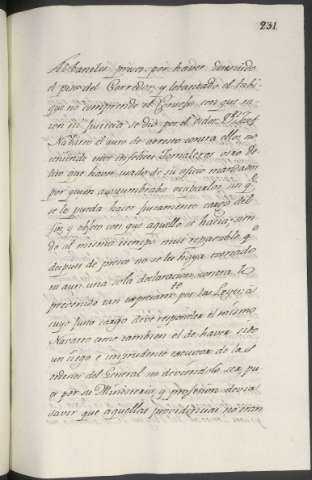 231
Albañiles presos, por haver demolido
el piso del Corredor, y debaratado el tabi
que no comprende el Consejo, con que ra-
zon ni Justicia se dio por el Oidor Dn. Josef
Navarro el auto de arresto contra ellos, no
teniendo estos infelices Jornaleros otro de
lito que haver usado de su oficio mandados
por quien acostumbraba ocuparlos, sin qe.
se les pueda hacer justamente cargo del
fin, y obgeto con que aquello se hacia, sien-
do al mismo tiempo mui reparable, qe.
despues de presos no se les haya tomado
ni aun una sola declaracion contra lo
prevenido tan expresamte. por las Leyes, à
cuyo justo cargo deve responder el mismo
Navarro como tambien el de haver sido
un ciego è imprudente executor de las or
denes del General no deviendolo ser, pu
es por su Ministerio, y profesion devia
saver que aquellas providencias no eran